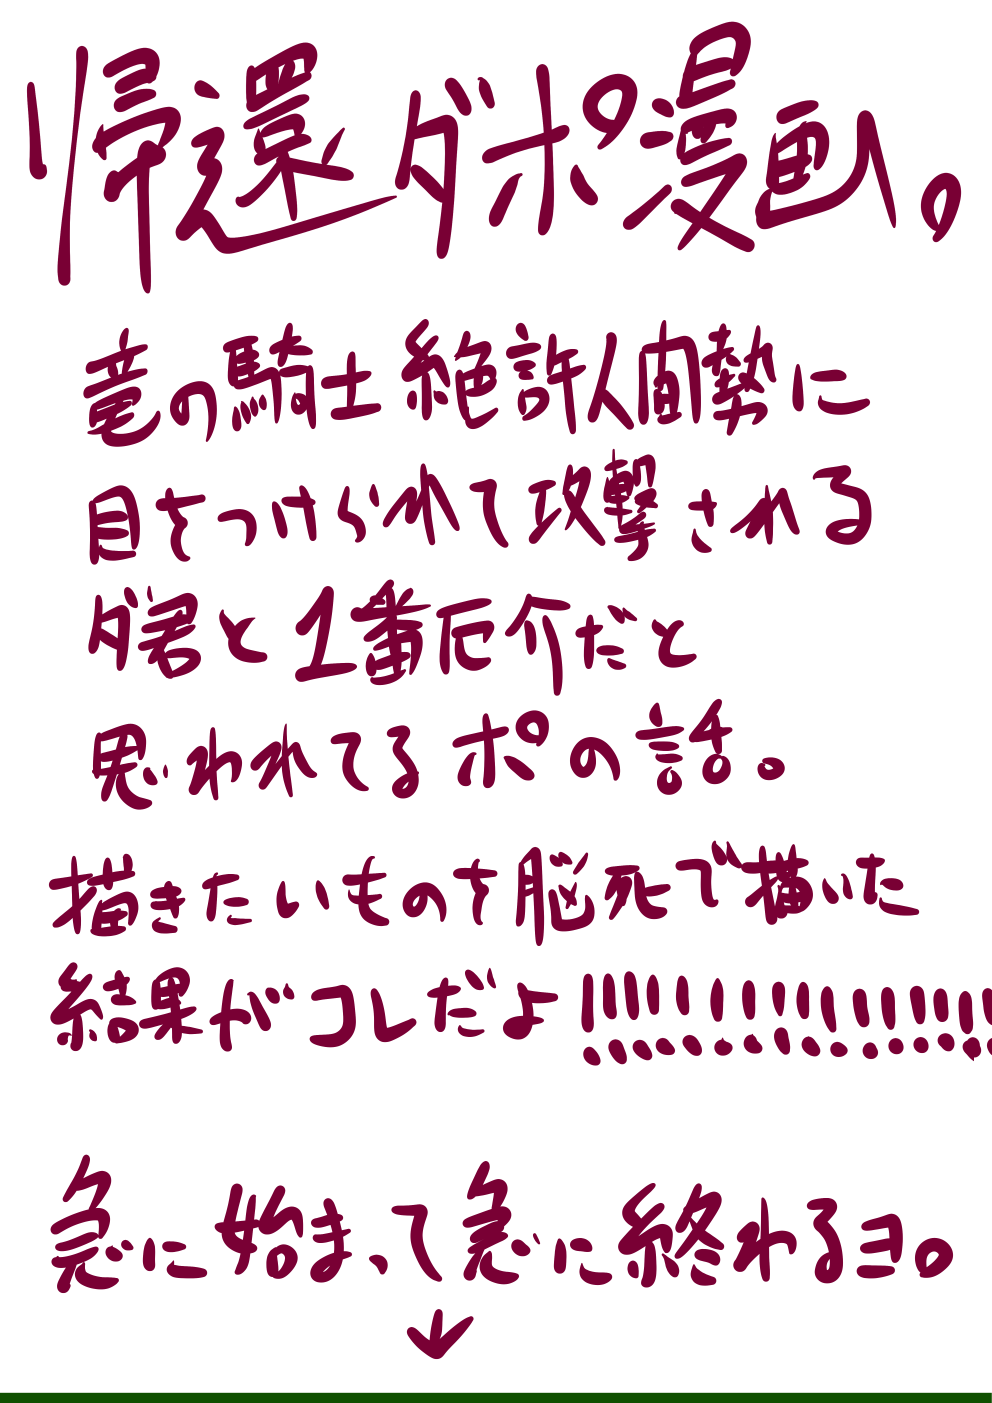 帰還ダポ漫画。
竜の騎士絶許人間勢に
目をつけられて攻撃される
ダ君と1番厄介だと
思われてるポの話。
描きたいものを脳死で描いた
結果がコレだよ!!!!!!!!!!!!!!!!!
急に始まって急に終わるヨ。
↓